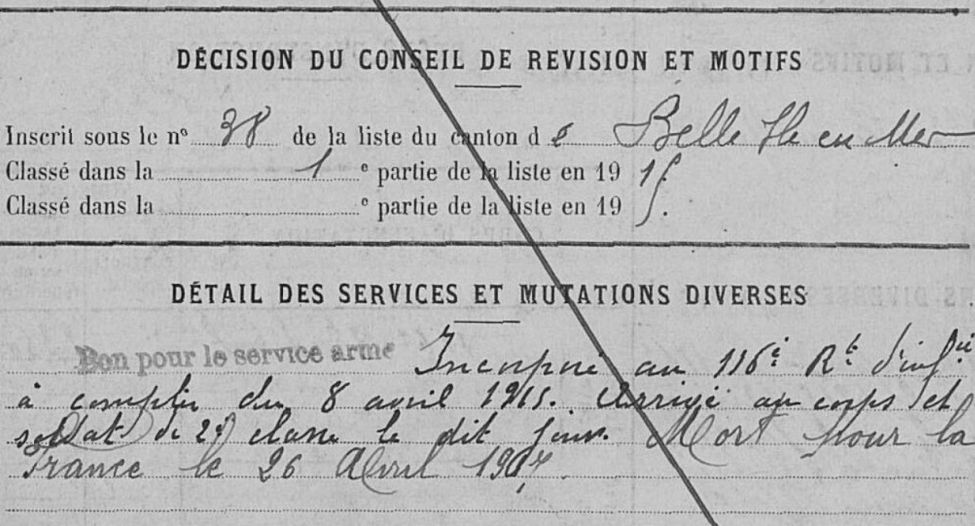 DÉCISION DU CONSEIL DE REVISION ET MOTIFS
Inscrit sous le n° 38 de la liste du canton de Belle Ile en Mer
Classé dans la 1e partie de la liste en 1915.
Classé dans la e partie de la liste en 19
DÉTAIL DES SERVICES ET MUTATIONS DIVERSES
Bon pour le service armé Incorporé au 116e Rt d'infie
à compter du 8 avril 1915. Arrivé au corps et
soldat de 2e classe le dit jour. Mort pour la
France le 26 Avril 1917.